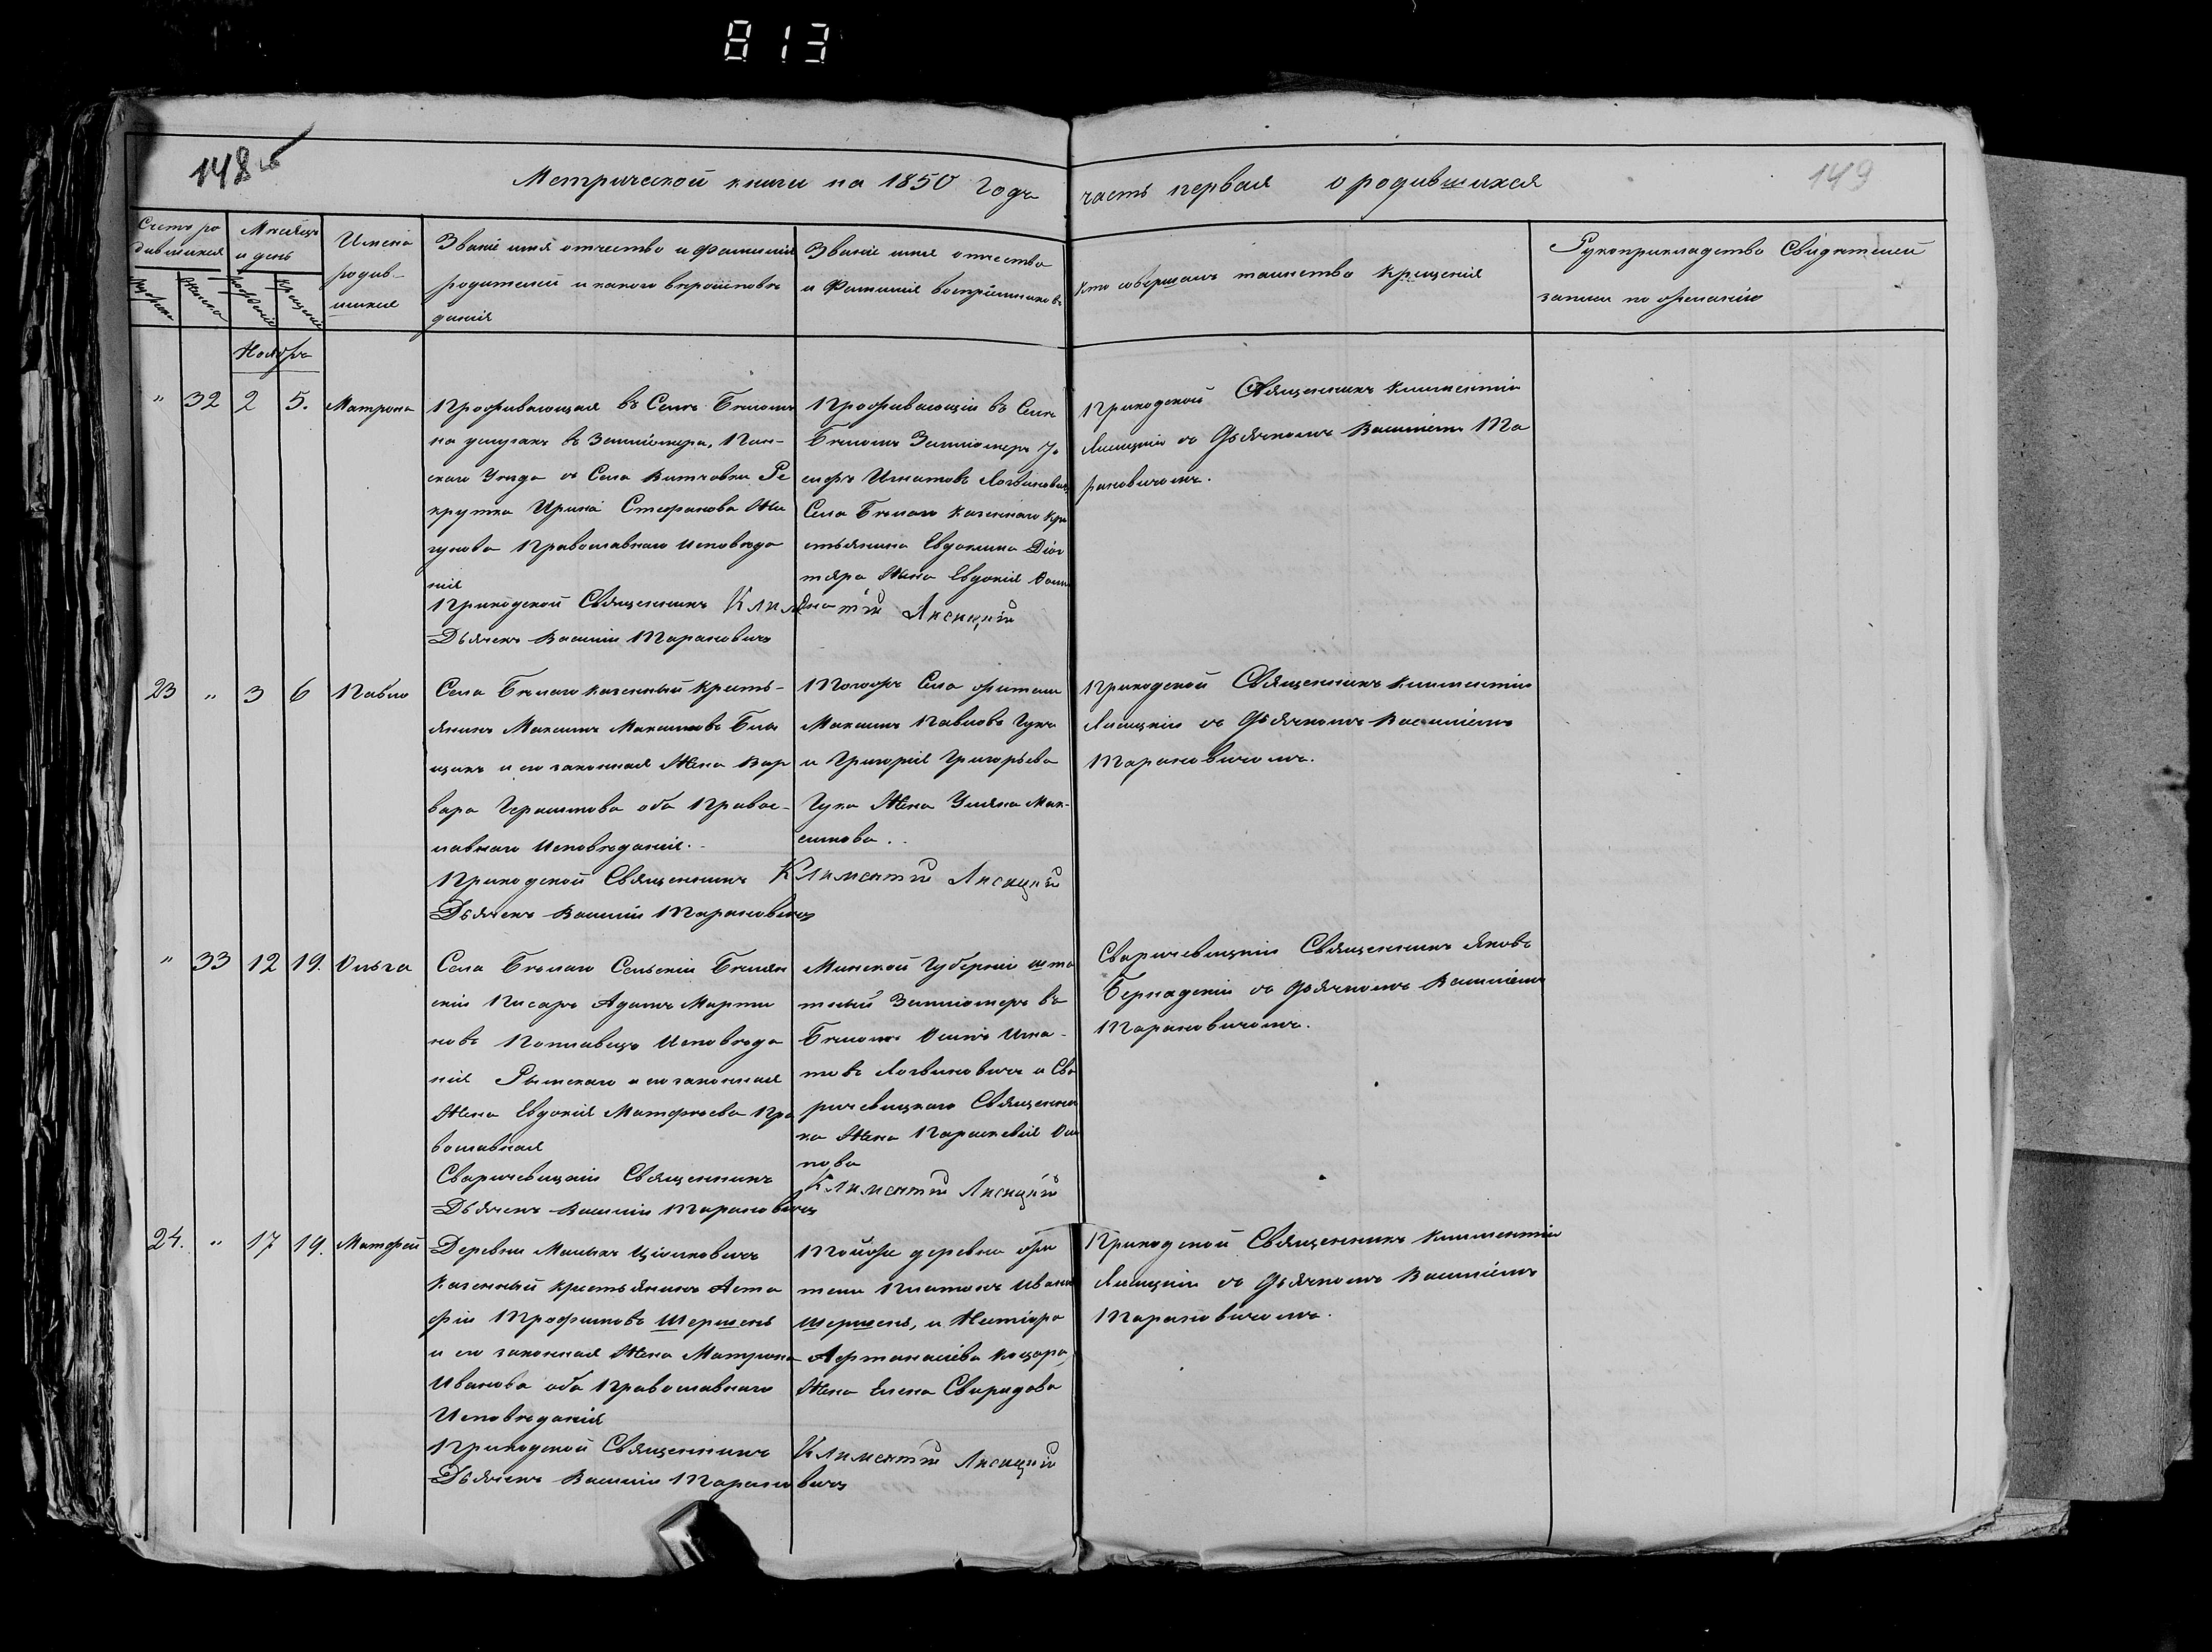 813
148 об
149
Метрической книги на 1850 годъ часть первая о родившихся
Счетъ ро
дившихся
Мужеска
Женска
Мѣсяцъ
и день
Рожденія
Крещенія
Имена
родив-
шихся
Званіе имя отчество и фамилія
родителей и какого вѣроисповѣ
данія
Званіе имя отчество
и Фамилія воспріимниковъ
Кто совершалъ таинство крещенія
Рукоприкладство Свидѣтелей
записи по желанію
Ноябрь
" 32 2 5. Матрона
Проживающая въ Селѣ Бѣломъ
на услугахъ въ Землѣмера, Пин-
скаго Уѣзда съ Села Витчовки Ре
крутка Ирина Стефанова
православнаго исповѣда
нія
Приходской Священникъ Климентій Лисицкій
Дьячекъ Василій Тарановичъ
Проживающій въ Селѣ
Бѣломъ Землемеръ Іо
сифъ Игнатовъ Логвиновичъ
Села Бѣлаго казеннаго кре
стьянина Евдокима
жена Евдокія
Приходской Священникъ Климентій
Лисицкій съ Дьячкомъ Василіемъ Та
рановичомъ.
23 " 3 6 Павло
Села Бѣлаго казенный кресть-
янинъ Максимъ Максимовъ
и его законная Жена Вар
вара Герасимова оба Право-
славнаго Исповѣданія.
Приходской Священникъ Климентій Лисицкій
Дьячекъ Василій Тарановичъ
Тогожъ Села жители
Максимъ Павловъ Гукъ
и Григорія Григорьева
Гука Жена Уляна Мак-
симова.
Приходской Священникъ Климентій
Лисицкій съ Дьячкомъ Василіемъ
Тарановичомъ.
" 33 12 19. Ольга
Села Бѣлаго Сельскій Бѣлян
скій Писаръ Адамъ Марти
новъ Поплавецъ Исповѣда
нія Римскаго и его законная
Жена Евдокія Матфѣева пра
вославная
Сваричевицкій Священникъ
Дьячекъ Василій Тарановичъ
Минской Губерніи шта
тный Землемеръ въ
Бѣломъ Осипъ Игна-
товъ Логвиновичъ и Сва
ричевицкаго Священни
ка Жена Параскевія Оси
пова
Климентій Лисицкій
Сваричевицкій Священникъ Яковъ
Бернадскій съ Дьячкомъ Василіемъ
Тарановичомъ.
24. " 17 19. Матфей
Деревни Малыхъ Цѣпцевичъ
казенный крестьянинъ Аста
фій Трофимовъ Шершень
и его законная Жена Матрона
Иванова оба Православнаго
Исповѣданія
Приходской Священникъ Климентій Лисицкій
Дьячекъ Василій Тарановичъ
Тойже деревни жи
тели Платонъ Ивановъ
Шершень, и Никифора
Афтанасіева Коцара,
Жена Елена Свиридова
Приходской Священникъ Климентій
Лисицкій съ Дьячкомъ Василіемъ
Тарановичомъ.